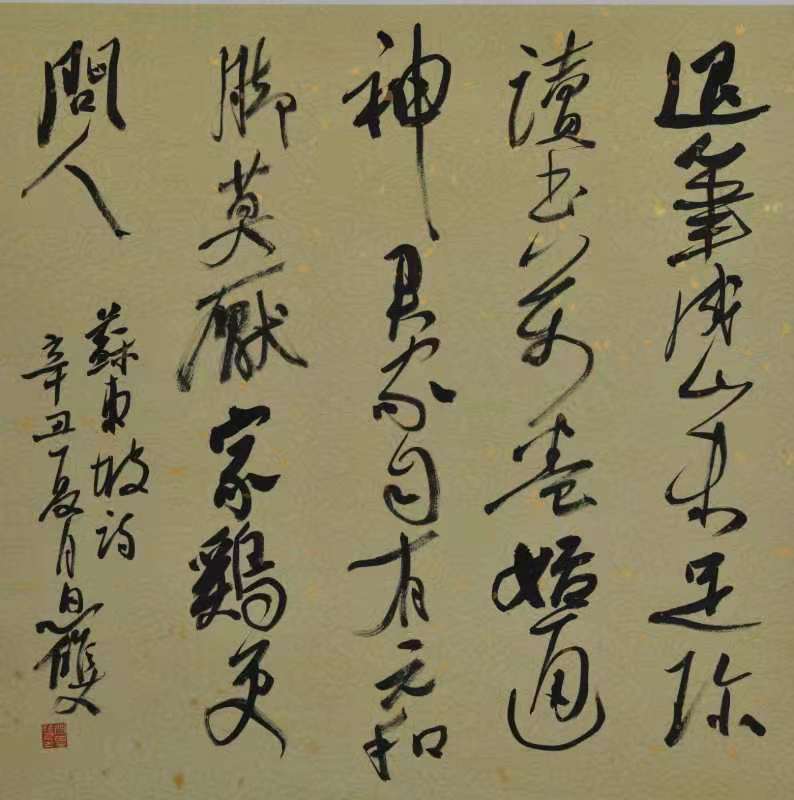 退筆成山未足珍
讀书萬卷始通
神君家自有元和
脚莫厭家鷄更
問人
蘇東坡詩
辛丑夏月